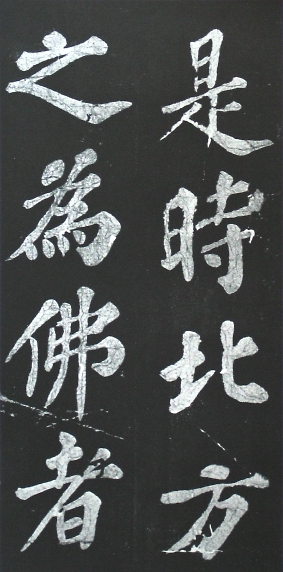 是時北方
之為佛者